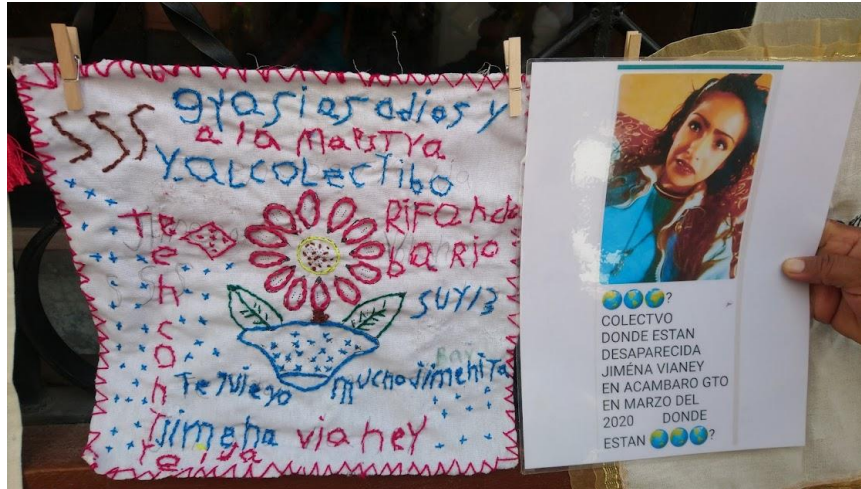 SSS
gyasias adios y
a la MaesTYa
Y.aLCOLecTibo
RiFando
baRio
TeenconTre
SUYI3
Te quieyo muchoJimenita
Jimena vianey
COLECTVO
DONDE ESTAN
DESAPARECIDA
JIMÉNA VIANEY
EN ACAMBARO GTO
EN MARZO DEL
2020 DONDE
ESTAN 🌎🌎🌎?